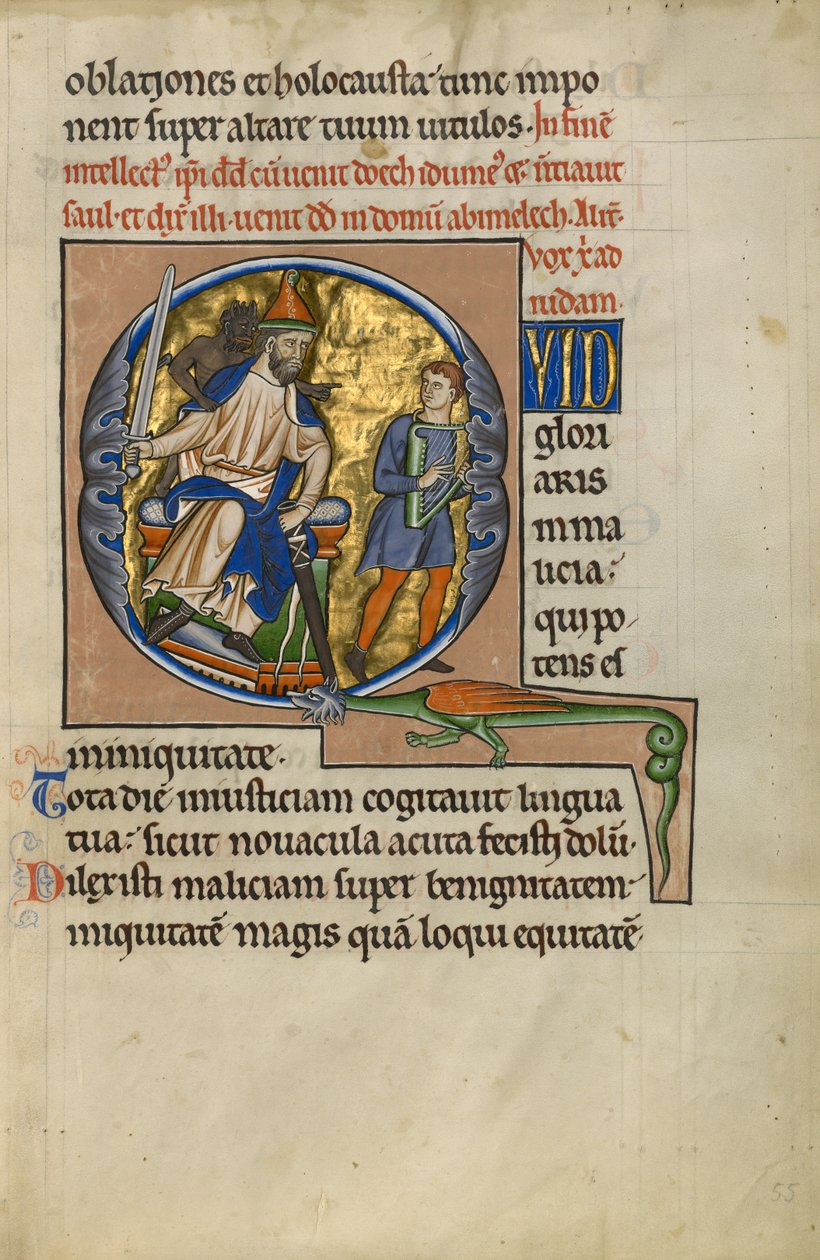 oblationes et holocausta tunc impo
nent super altare tuum uitulos. In finē
intellectꝰ ip̄i dd̄ cū uenit doech idumeꝰ ⁊ n̄tiauit
saul. et dix̄ illi. uenit dd̄ in domū abimelech. Alit̄.
vox x̄ ad
iudam.
QVID
glori
aris
in ma
licia:
qui po
tens es
in iniquitate.
Tota die iniusticiam cogitauit lingua
tua: sicut nouacula acuta fecisti dolū.
Dilexisti maliciam super benignitatem:
iniquitatē magis quā loqui equitatē.
55